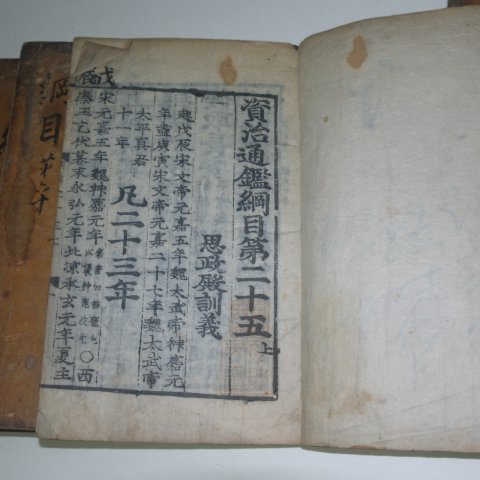 資治通鑑綱目第二十五上
思政殿訓義
起戊辰宋文帝元嘉五年魏太武帝神䴥元
年盡庚寅宋文帝元嘉二十七年魏太武帝
太平真君
十一年
凡二十三年
戊
辰
宋元嘉五年魏神䴥元年
○西
秦王乞伏暮末永弘元年北涼承玄元年夏主
綱目